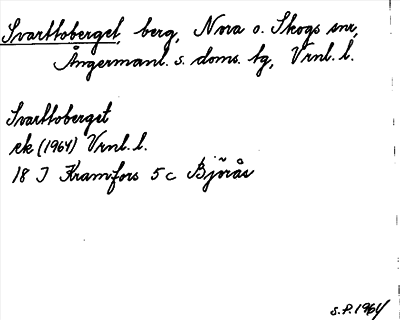 Svarttoberget, berg, Nora o. Skogs snr,
Ångermanl. s. doms. tg, Vrnl. l.
Svarttoberget
ek (1964) Vrnl. l.
18 I Kramfors 5 c Björås
S.P. 1964